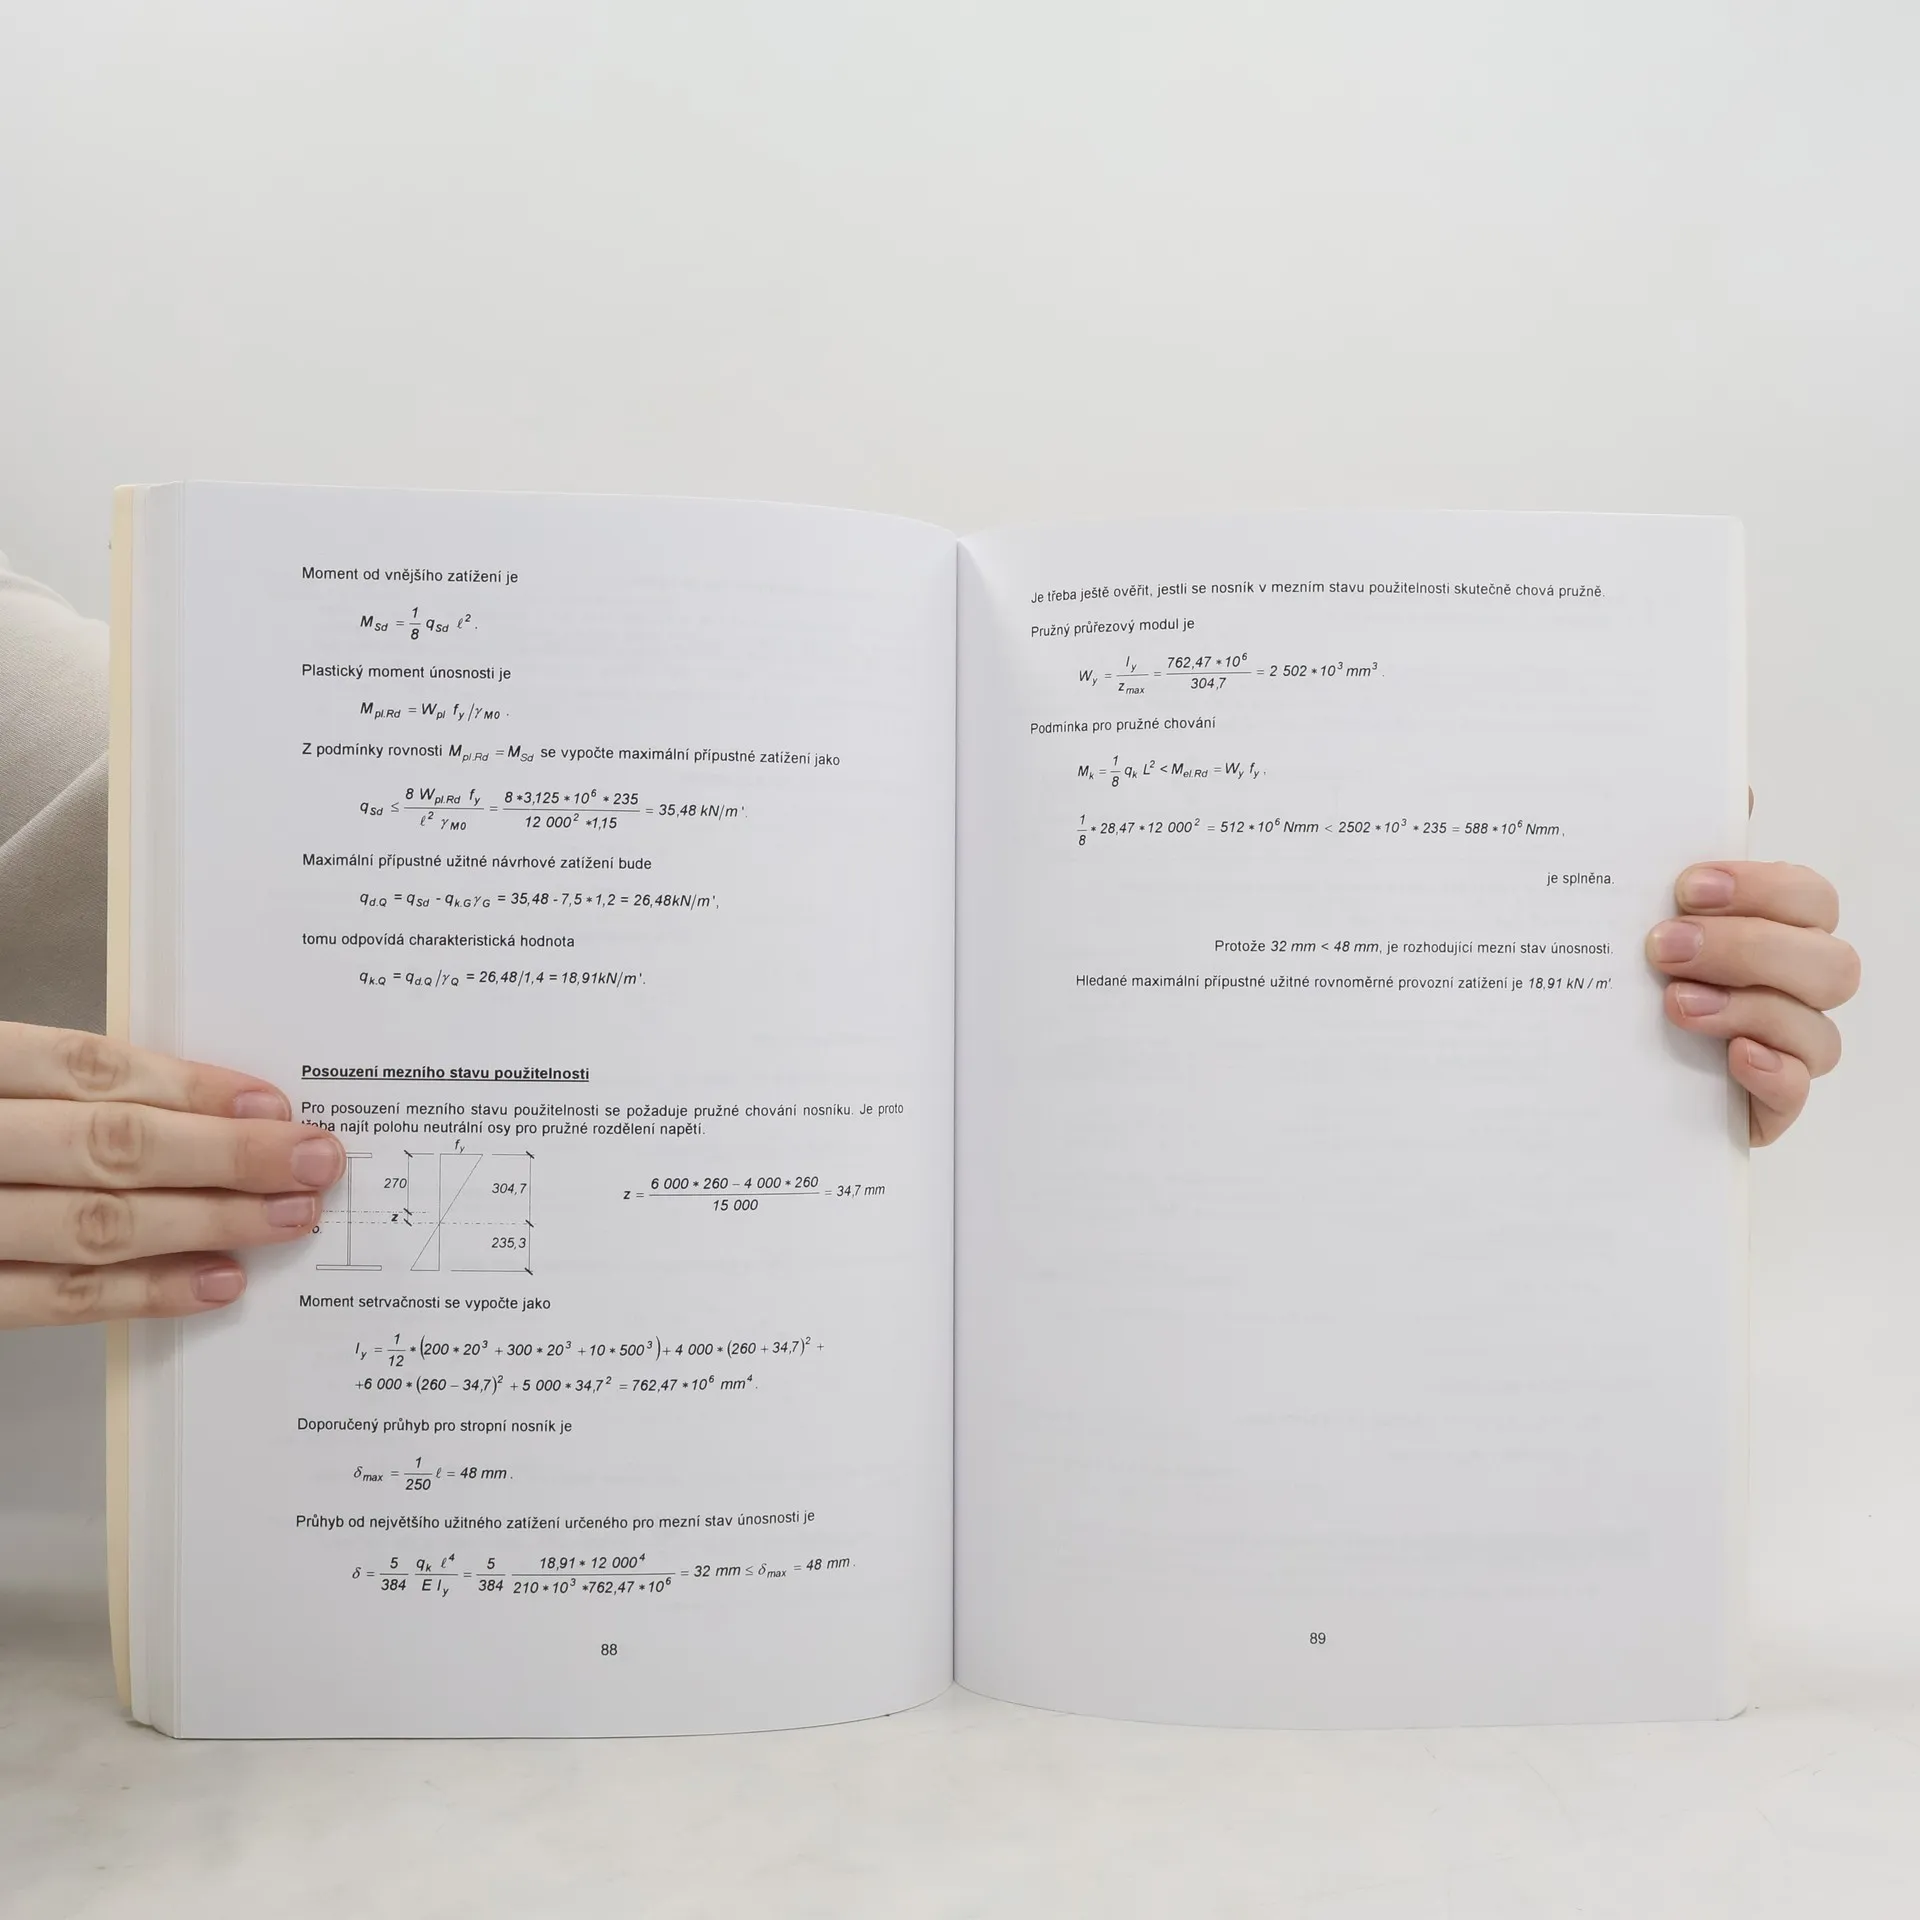 Moment od vnějšího zatížení je
M_Sd = 1/8 q_Sd ℓ².
Plastický moment únosnosti je
M_pl.Rd = W_pl f_y /γ_M0 .
Z podmínky rovnosti M_pl.Rd = M_Sd se vypočte maximální přípustné zatížení jako
q_Sd ≤ 8 W_pl.Rd f_y / ℓ² γ_M0 = 8*3,125*10⁶*235 / 12 000² *1,15 = 35,48 kN/m'.
Maximální přípustné užitné návrhové zatížení bude
q_d.Q = q_Sd - q_k.G γ_G = 35,48 - 7,5*1,2 = 26,48kN/m',
tomu odpovídá charakteristická hodnota
q_k.Q = q_d.Q /γ_Q = 26,48/1,4 = 18,91kN/m'.
Posouzení mezního stavu použitelnosti
Pro posouzení mezního stavu použitelnosti se požaduje pružné chování nosníku. Je proto
najít polohu neutrální osy pro pružné rozdělení napětí.
f_y
270
304,7
z
235,3
z = 6 000 * 260 – 4 000 * 260 / 15 000 = 34,7 mm
Moment setrvačnosti se vypočte jako
I_y = 1/12 * (200 * 20³ + 300 * 20³ + 10 * 500³) + 4 000 * (260 + 34,7)² +
+6 000 * (260 – 34,7)² + 5 000 * 34,7² = 762,47 * 10⁶ mm⁴.
Doporučený průhyb pro stropní nosník je
δ_max = 1/250 ℓ = 48 mm.
Průhyb od největšího užitného zatížení určeného pro mezní stav únosnosti je
δ = 5/384 q_k ℓ⁴ / E I_y = 5/384 18,91 * 12 000⁴ / 210 * 10³ *762,47 * 10⁶ = 32 mm ≤ δ_max = 48 mm.
88
Je třeba ještě ověřit, jestli se nosník v mezním stavu použitelnosti skutečně chová pružně.
Pružný průřezový modul je
W_y = I_y / z_max = 762,47 * 10⁶ / 304,7 = 2 502 * 10³ mm³.
Podmínka pro pružné chování
M_k = 1/8 q_k L² < M_el.Rd = W_y f_y,
1/8 * 28,47 * 12 000² = 512 * 10⁶ Nmm < 2502 * 10³ * 235 = 588 * 10⁶ Nmm,
je splněna.
Protože 32 mm < 48 mm, je rozhodující mezní stav únosnosti.
Hledané maximální přípustné užitné rovnoměrné provozní zatížení je 18,91 kN / m'.
89